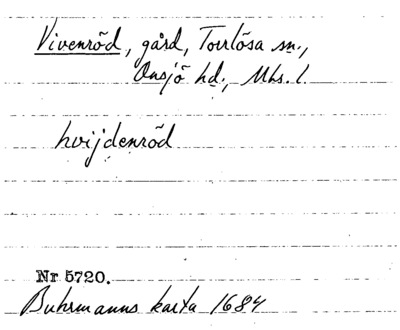 Vivenröd, gård, Torrlösa sn.,
Onsjö hd., Mhs. l.
hvijdenröd
Nr 5720.
Buhrmanns karta 1684